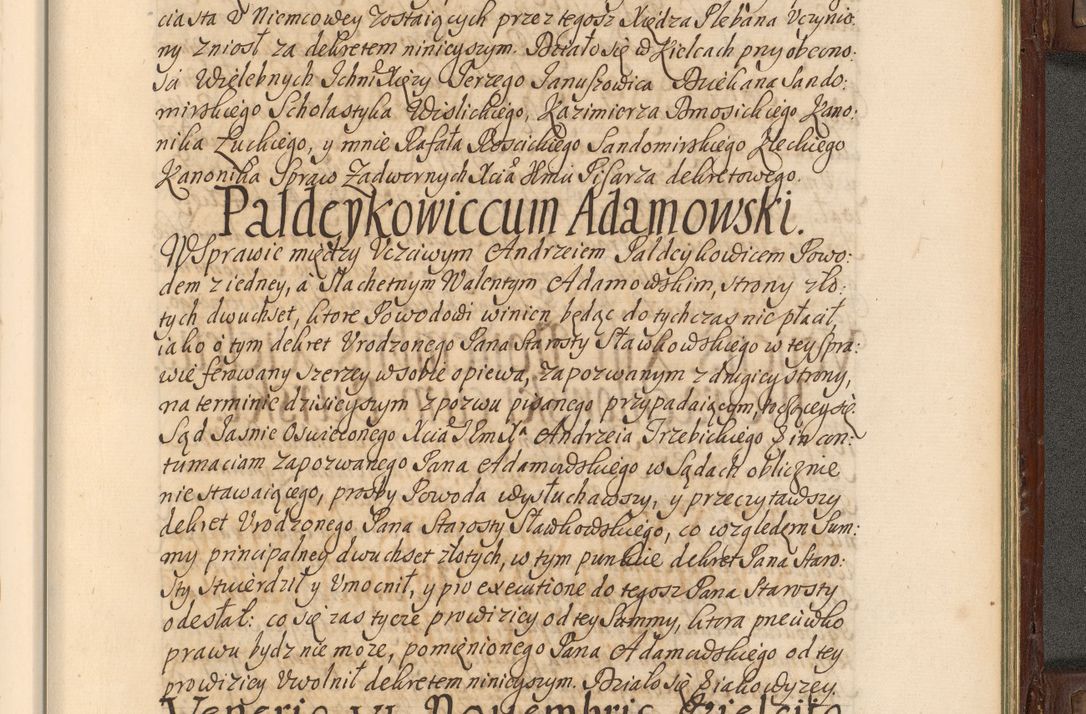 ciasta w Niemcowey zostaiących przez tegosz Xiędza Plebana Vczynio:
ny zniosł za dekretem ninieyszym. Działo się w Kielcach przy obecno:
ści Wielebnych Ichmć Xięży Jerzego Januszowica Dziekana Sando:
mirskiego Scholastyka Wislickiego, Kazimierza Bmosickiego Kano:
nika Łuckiego, y mnie Rafała Rościckiego Sandomirskiego Kieckiego
Kanonika Spraw Zadwornych Xcia JEmci Pisarza dekretowego.
Paldeykowiccum Adamowski.
W Sprawie między Vczciwym Andrzeiem Paldeykowicem Powo:
dem z iedney, a Slachetnym Walentym Adamowskim, strony zło:
tych dwuchset, ktore Powodowi winien będąc do tychczas nie płacił,
iako o tym dekret Vrodzonego Pana Starosty Sławkowskiego w tey spra:
wie ferowany szerzey w sobie opiewa, zapozwanym z drugiey strony,
na terminie dzisieyszym z pozwu pisanego przypadaiącym, toczący się.
Sąd Jasnie Oswieconego Xcia JEm Xa Andrzeia Trzebickiego B in con:
tumaciam zapozwanego Pana Adamowskiego w Sądach oblicznie
nie stawaiącego, prosby Powoda wysłuchawszy, y przeczytawszy
dekret Vrodzonego Pana Starosty Sławkowskiego, co względem Sum:
my principalney dwuchset złotych, w tym punkcie dekret Pana Staro:
sty stwierdził y Vmocnił, y pro executione do tegosz Pana Starosty
odesłał: co się zas tycze prowizicy od tey Summy, ktora przeciwko
prawu bydz nie może, pomienionego Pana Adamowskiego od tey
prowizicy Vwolnił dekretem ninieyszym. Działo się iako wyzey.
Veneris VI Novembris Kielcijs